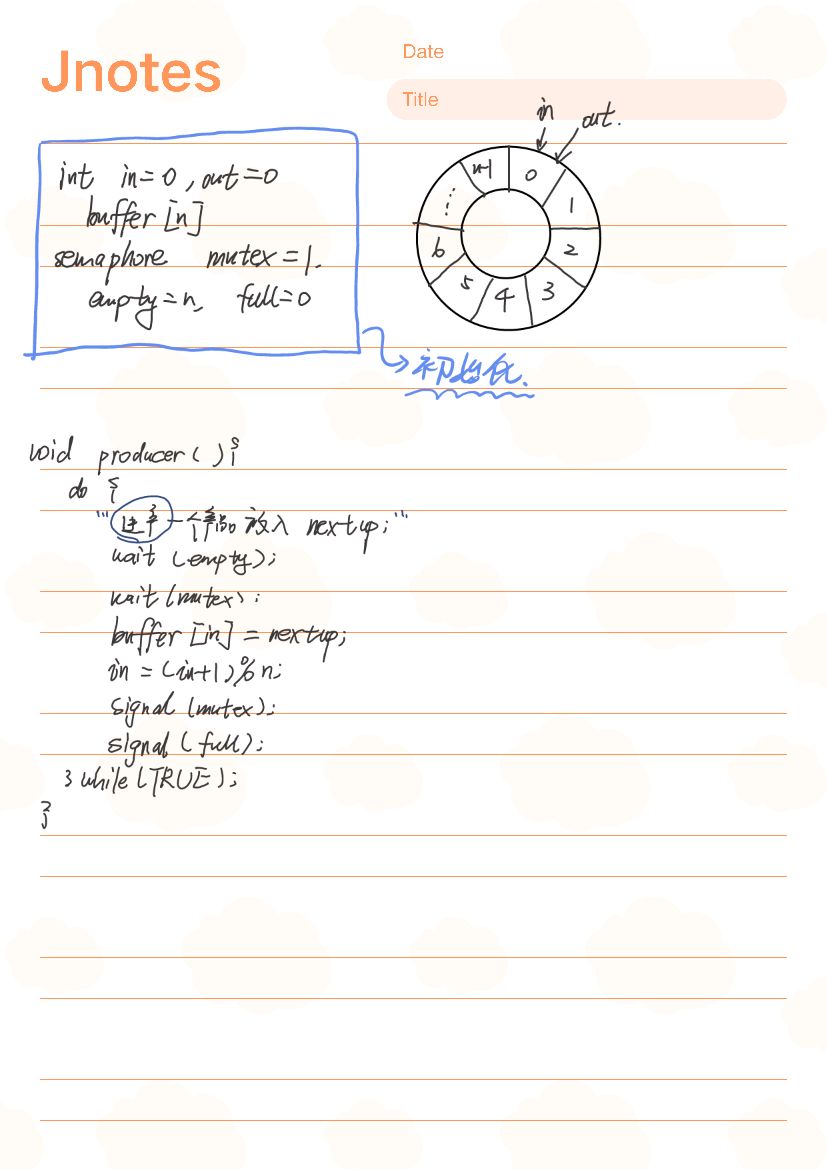 Jnotes
Date
Title
in out.
int in=0, out=0
buffer [n]
semaphore mutex=1.
empty=n, full=0
n-1 0 1 2 3 4 5 6 ...
初始化.
void producer( ){
do {
"' 一个 放入 nextup; '"
wait (empty);
wait (mutex);
buffer [in] = nextup;
in = (in+1)%n;
signal (mutex);
signal (full);
} while (TRUE);
}